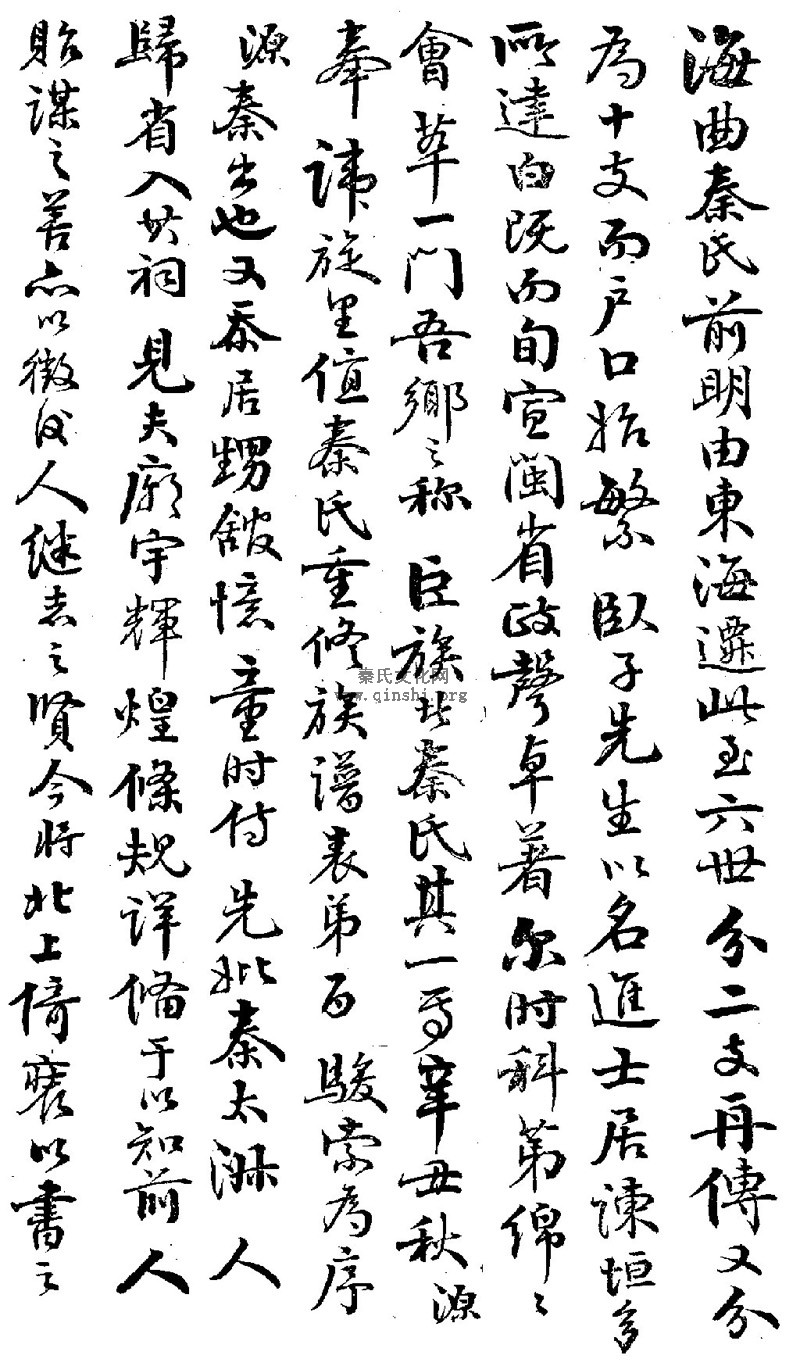 海曲秦氏前明由東海遷此至六世分二支再傳又分
為十支而户口始繁臥子先生以名進士居諫垣多
所達白既而旬宣閩省政聲卓著尔时科第綿〻
會萃一門吾鄉之称巨族秦氏其一焉辛丑秋源
奉諱旋里值秦氏重修族譜表弟百駿索為序
源秦出也又忝居甥館憶童时侍先妣秦太淑人
歸省入其祠見夫廟宇輝煌條規详備于以知前人
貽謀之善亦以徵後人继志之賢今將北上倚裝以書之
秦氏文化网
www.qinshi.org